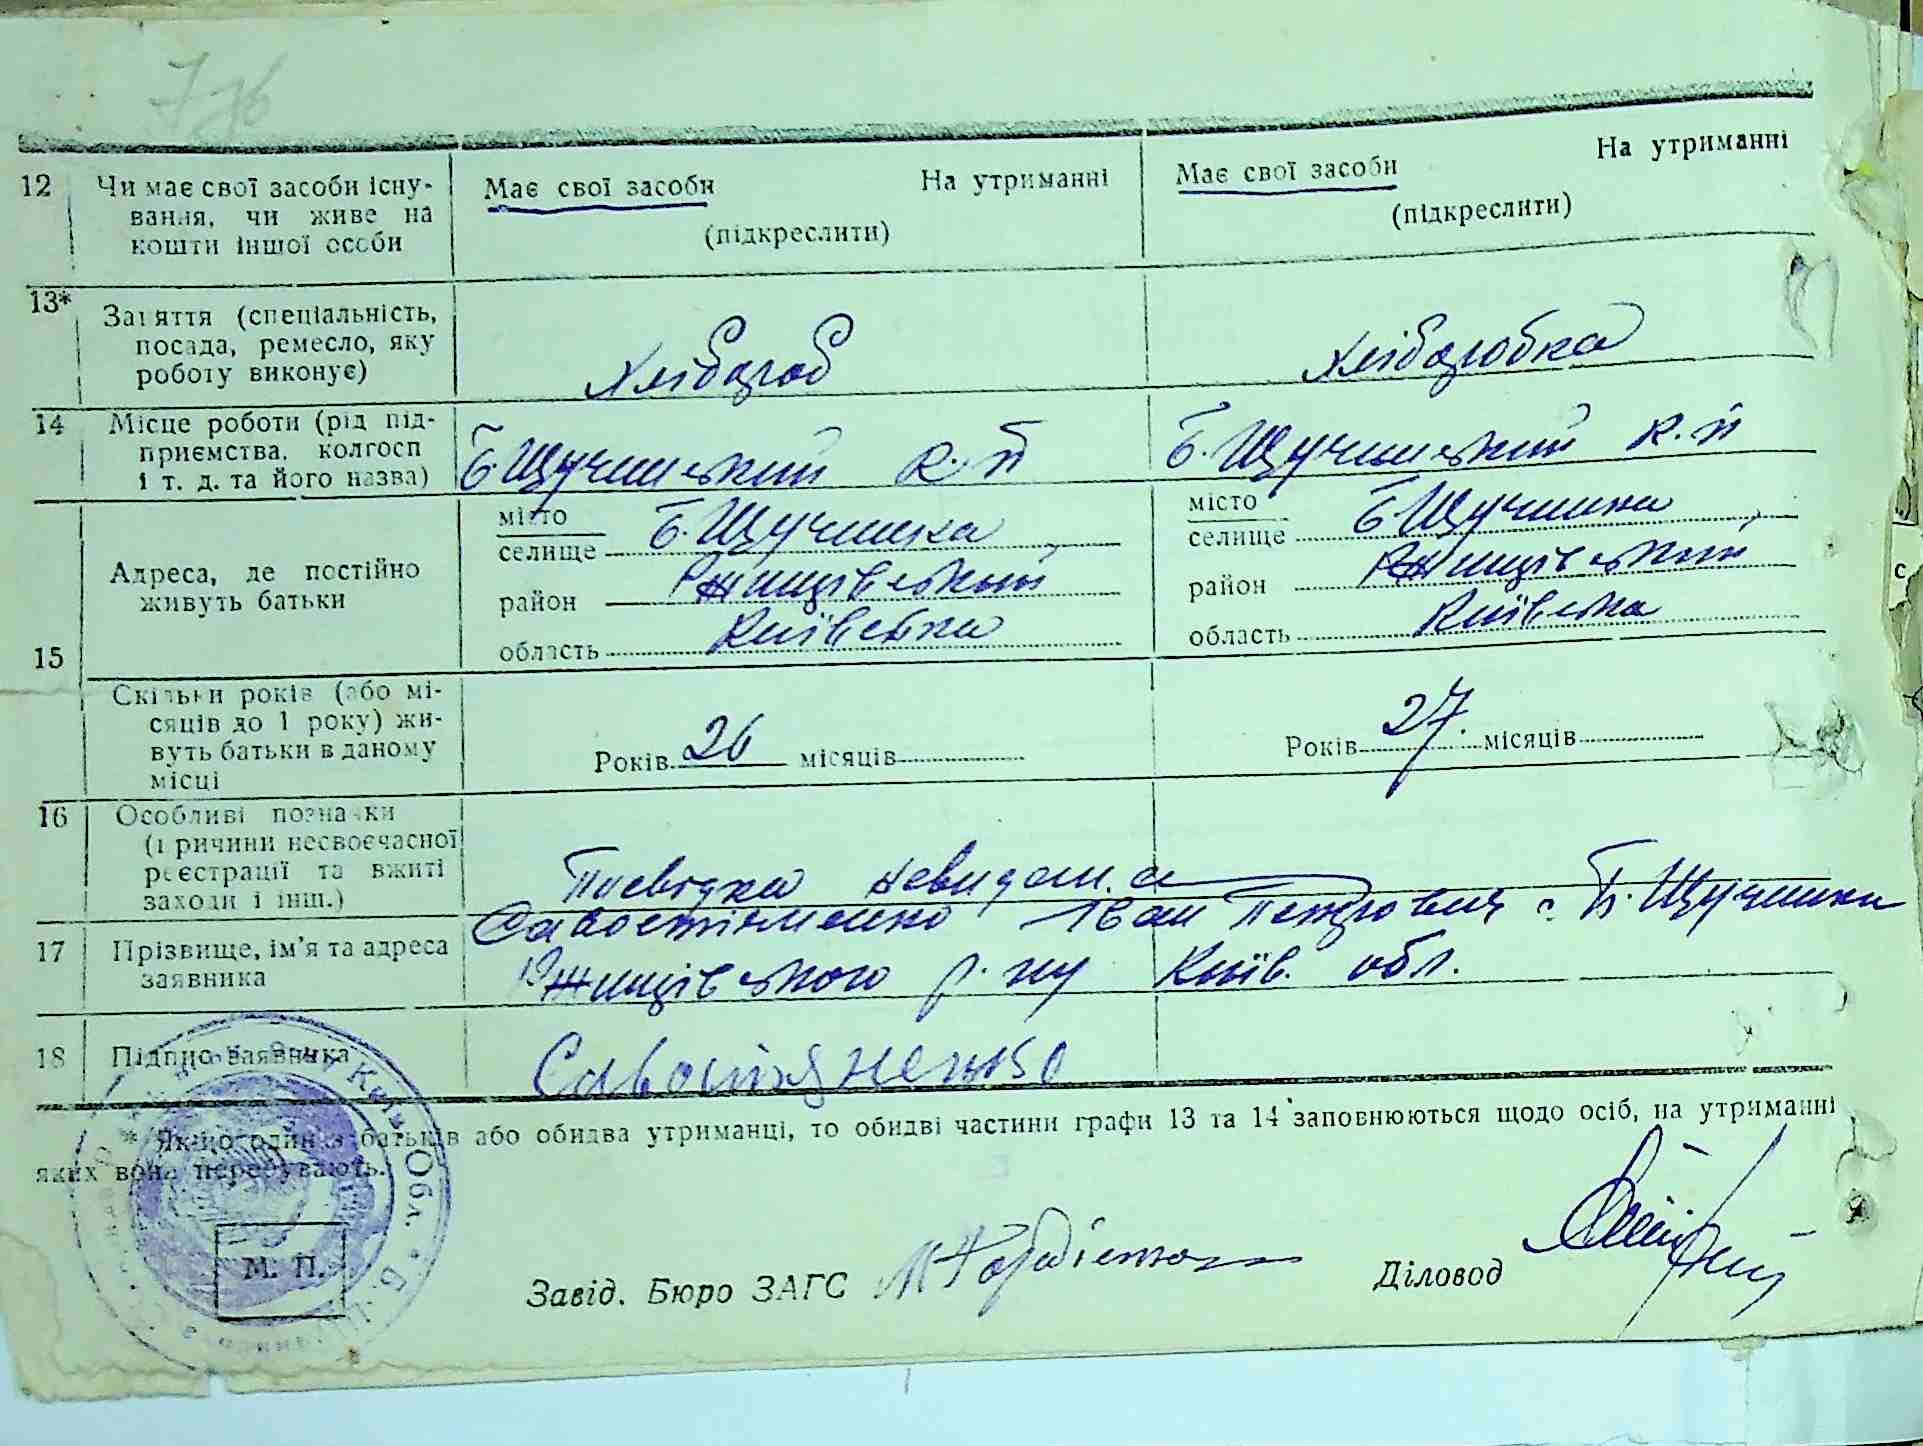 12 Чи має свої засоби існу-
вання, чи живе на
кошти іншої особи
Має свої засоби На утриманні
(підкреслити)
Має свої засоби На утриманні
(підкреслити)
13* Заняття (спеціальність,
посада, ремесло, яку
роботу виконує)
Хлібороб
Хліборобка
14 Місце роботи (рід під-
приємства, колгосп
і т. д. та його назва)
Б. Щучинський к.п
Б. Щучинський к.п
15 Адреса, де постійно
живуть батьки
місто
селище Б. Щучинка
район Ржищівський
область Київська
місто
селище Б. Щучинка
район Ржищівський
область Київська
Скільки років (або мі-
сяців до 1 року) жи-
вуть батьки в даному
місці
Років 26 місяців
Років 27. місяців
16 Особливі познаки
(причини несвоєчасної
реєстрації та вжиті
заходи і інш.)
Посвідка невидана
17 Прізвище, ім'я та адреса
заявника
Савостіяненко Іван Петрович с. Б. Щучинки
Ржищівського р-ну Київ. обл.
18 Підпис заявника
Савостіяненко
* Якщо один з батьків або обидва утриманці, то обидві частини графи 13 та 14 заповнюються щодо осіб, на утриманні
яких вони перебувають.
М. П.
Завід. Бюро ЗАГС
Діловод